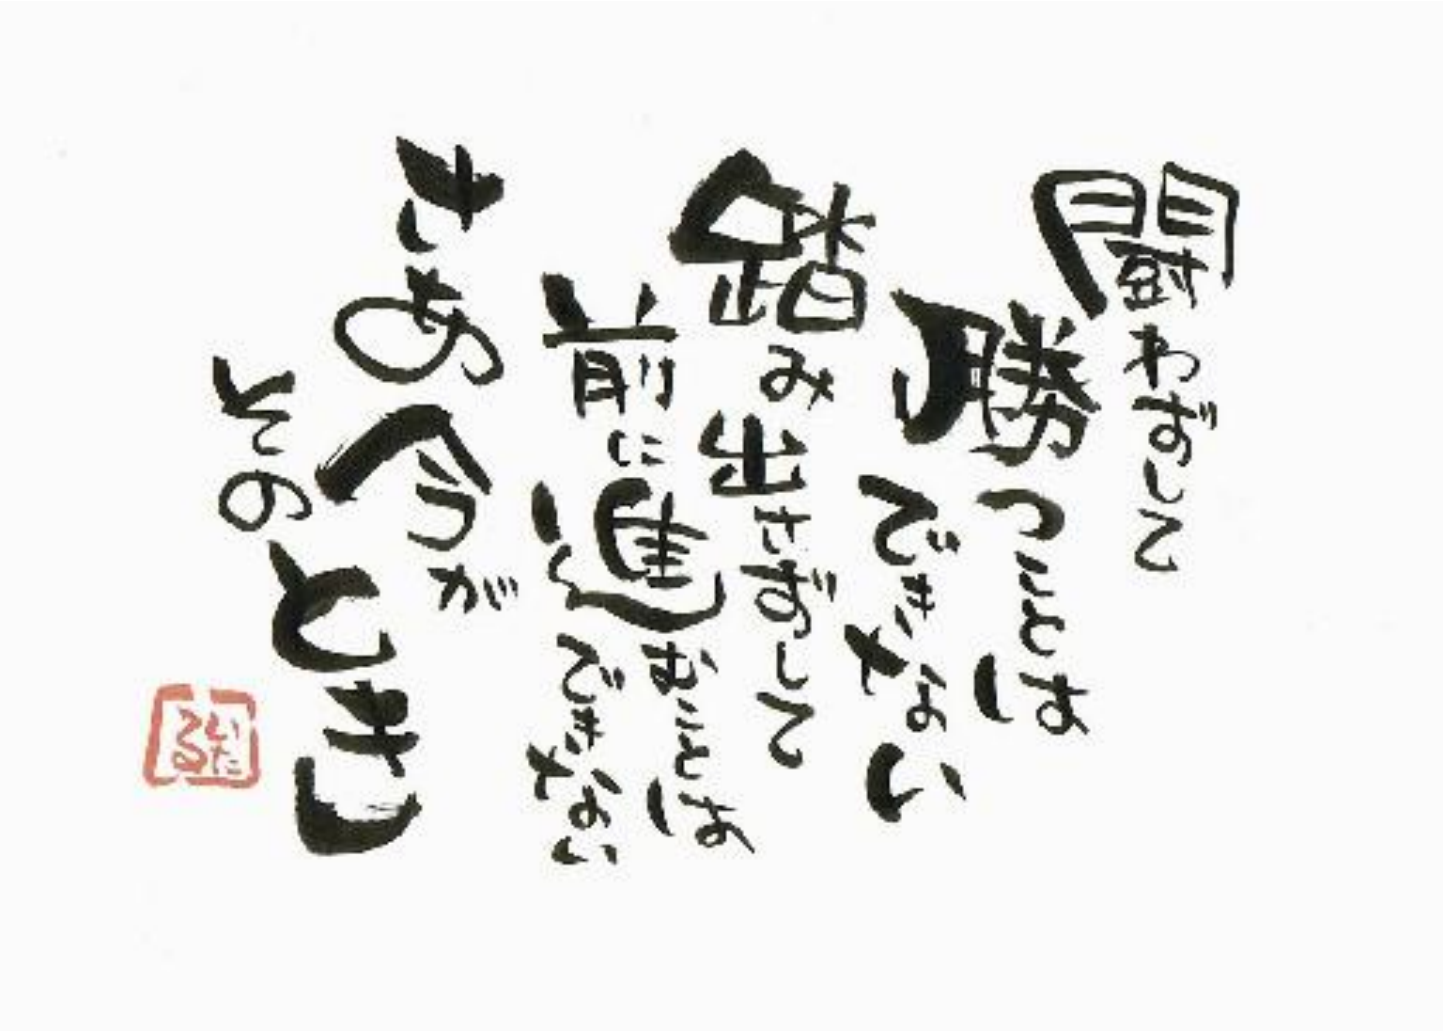 闘わずして
勝つことは
できない
踏み出さずして
前に進むことは
できない
さあ今が
そのとき
いた
る